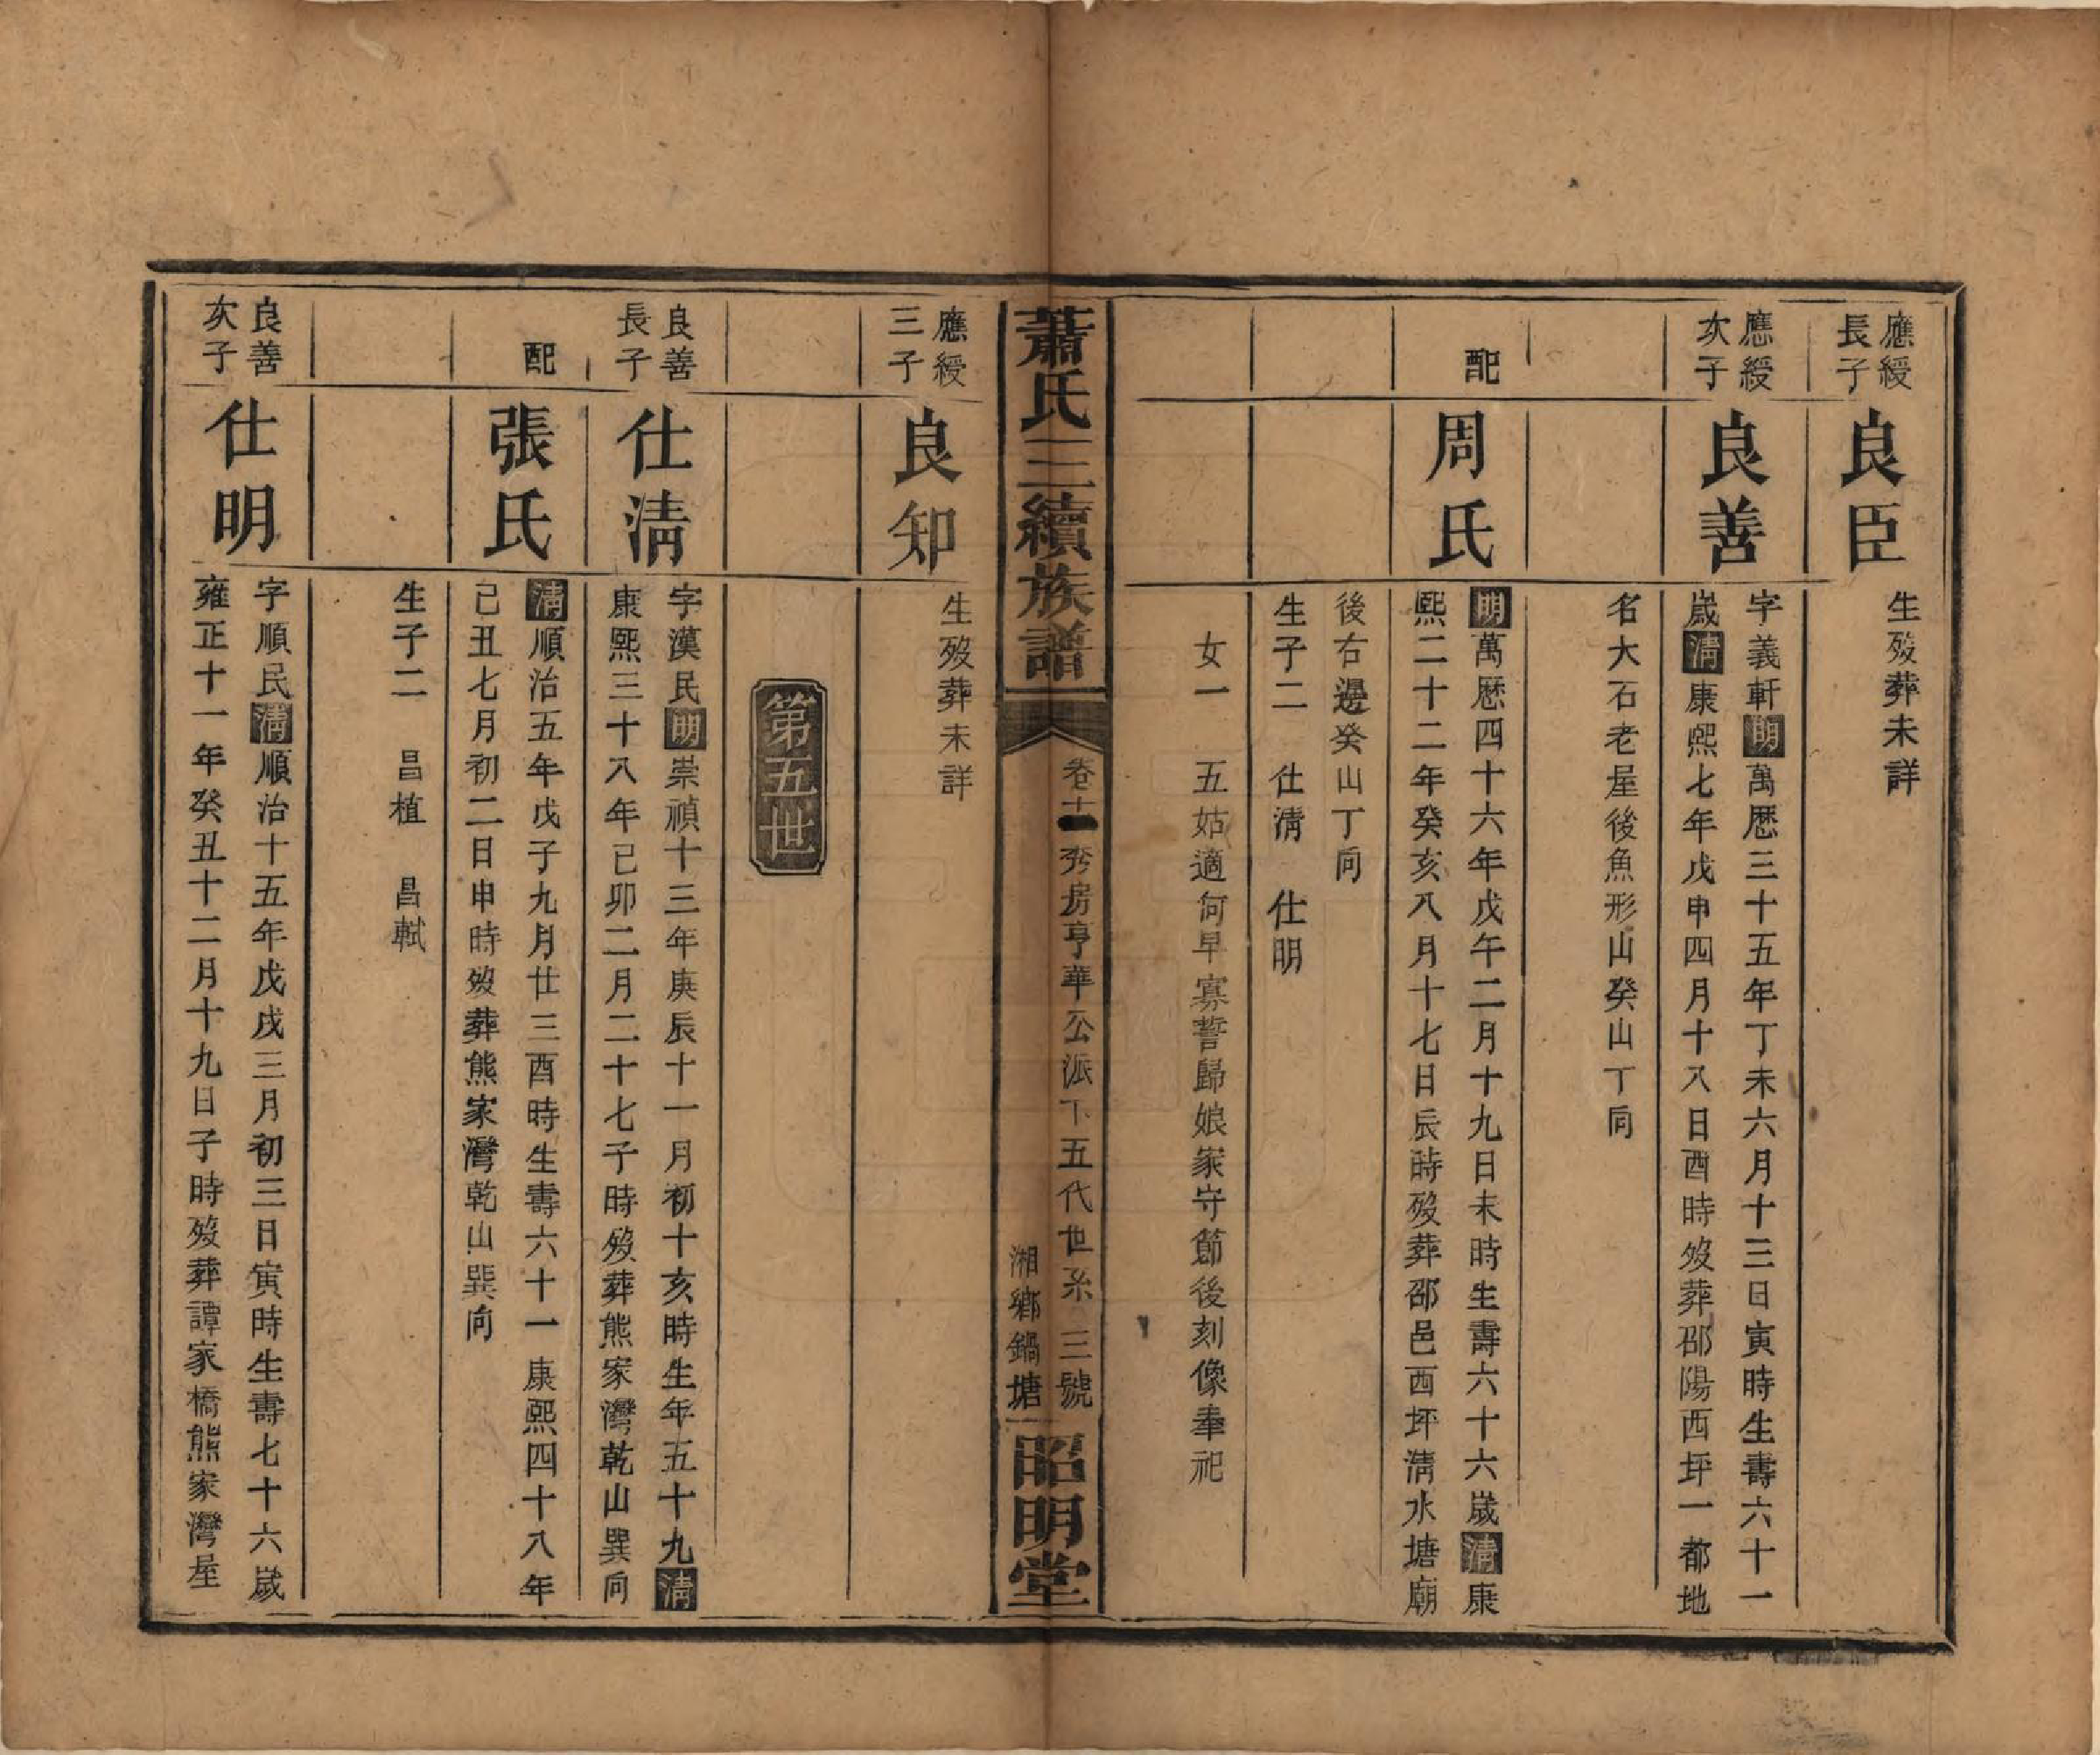 應綬
長子
良臣
生殁葬未詳
應綬
次子
良善
字義軒明萬歷三十五年丁未六月十三日寅時生壽六十一
歲清康熙七年戊申四月十八日酉時殁葬邵陽西坪一都地
名大石老屋後魚形山癸山丁向
配
周氏
明萬歷四十六年戊午二月十九日未時生壽六十六歲清康
熙二十二年癸亥八月十七日辰時殁葬邵邑西坪清水塘廟
後右邊癸山丁向
生子二　仕清　仕明
女一　五姑適何早寡誓歸娘家守節後刻像奉祀
蕭氏三續族譜
卷十一　秀房亨華公派下五代世系　三號
湘鄉鍋塘
昭明堂
應綬
三子
良知
生殁葬未詳
第五世
良善
長子
仕清
字漢民明崇禎十三年庚辰十一月初十亥時生年五十九清
康熙三十八年己卯二月二十七子時殁葬熊家灣乾山巽向
配
張氏
清順治五年戊子九月廿三酉時生壽六十一康熙四十八年
己丑七月初二日申時殁葬熊家灣乾山巽向
生子二　昌植　昌軾
良善
次子
仕明
字順民清順治十五年戊戌三月初三日寅時生壽七十六歲
雍正十一年癸丑十二月十九日子時殁葬譚家橋熊家灣屋